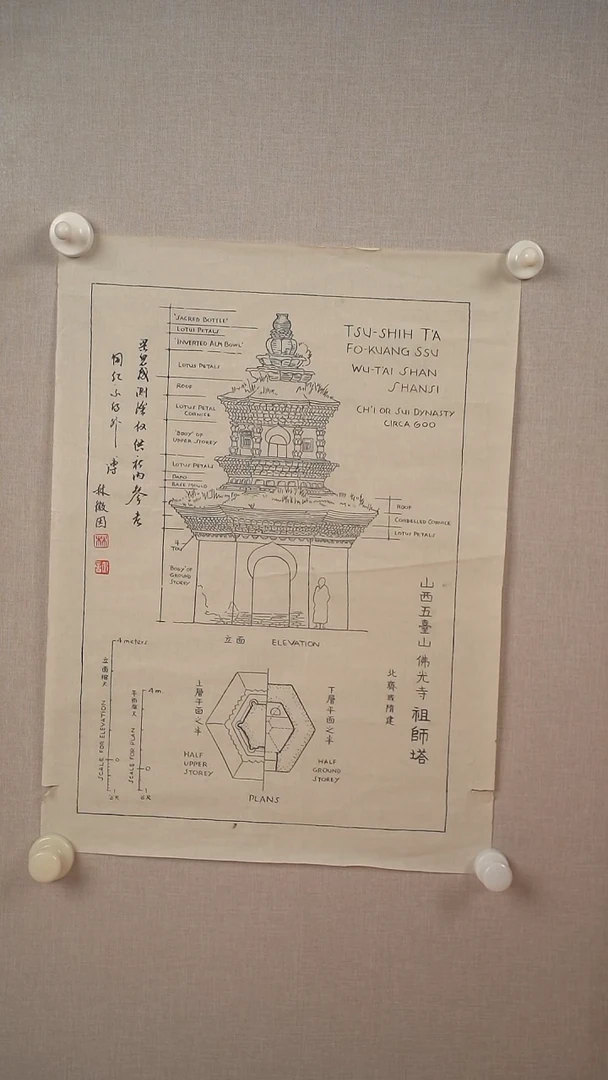 TSU-SHIH T'A
FO-KUANG SSU
WU-TAI SHAN
SHANSI
CH'I OR SUI DYNASTY
CIRCA 600
'SACRED BOTTLE'
LOTUS PETALS
'INVERTED ALM BOWL'
LOTUS PETALS
ROOF
LOTUS PETAL
CORNICE
'BODY' OF
UPPER STOREY
LOTUS PETALS
DADO
BASE MOULD
ROOF
CORBELLED CORNICE
LOTUS PETALS
'BODY' OF
GROUND
STOREY
立面 ELEVATION
山西五臺山佛光寺祖師塔
北齊或隋建
4 meters
0
1
立面縮尺
SCALE FOR ELEVATION
4 m.
0
1
SCALE FOR PLAN
上層平面之半
HALF
UPPER
STOREY
下層平面之半
HALF
GROUND
STOREY
PLANS
測繪僅供社內參考
林徽因